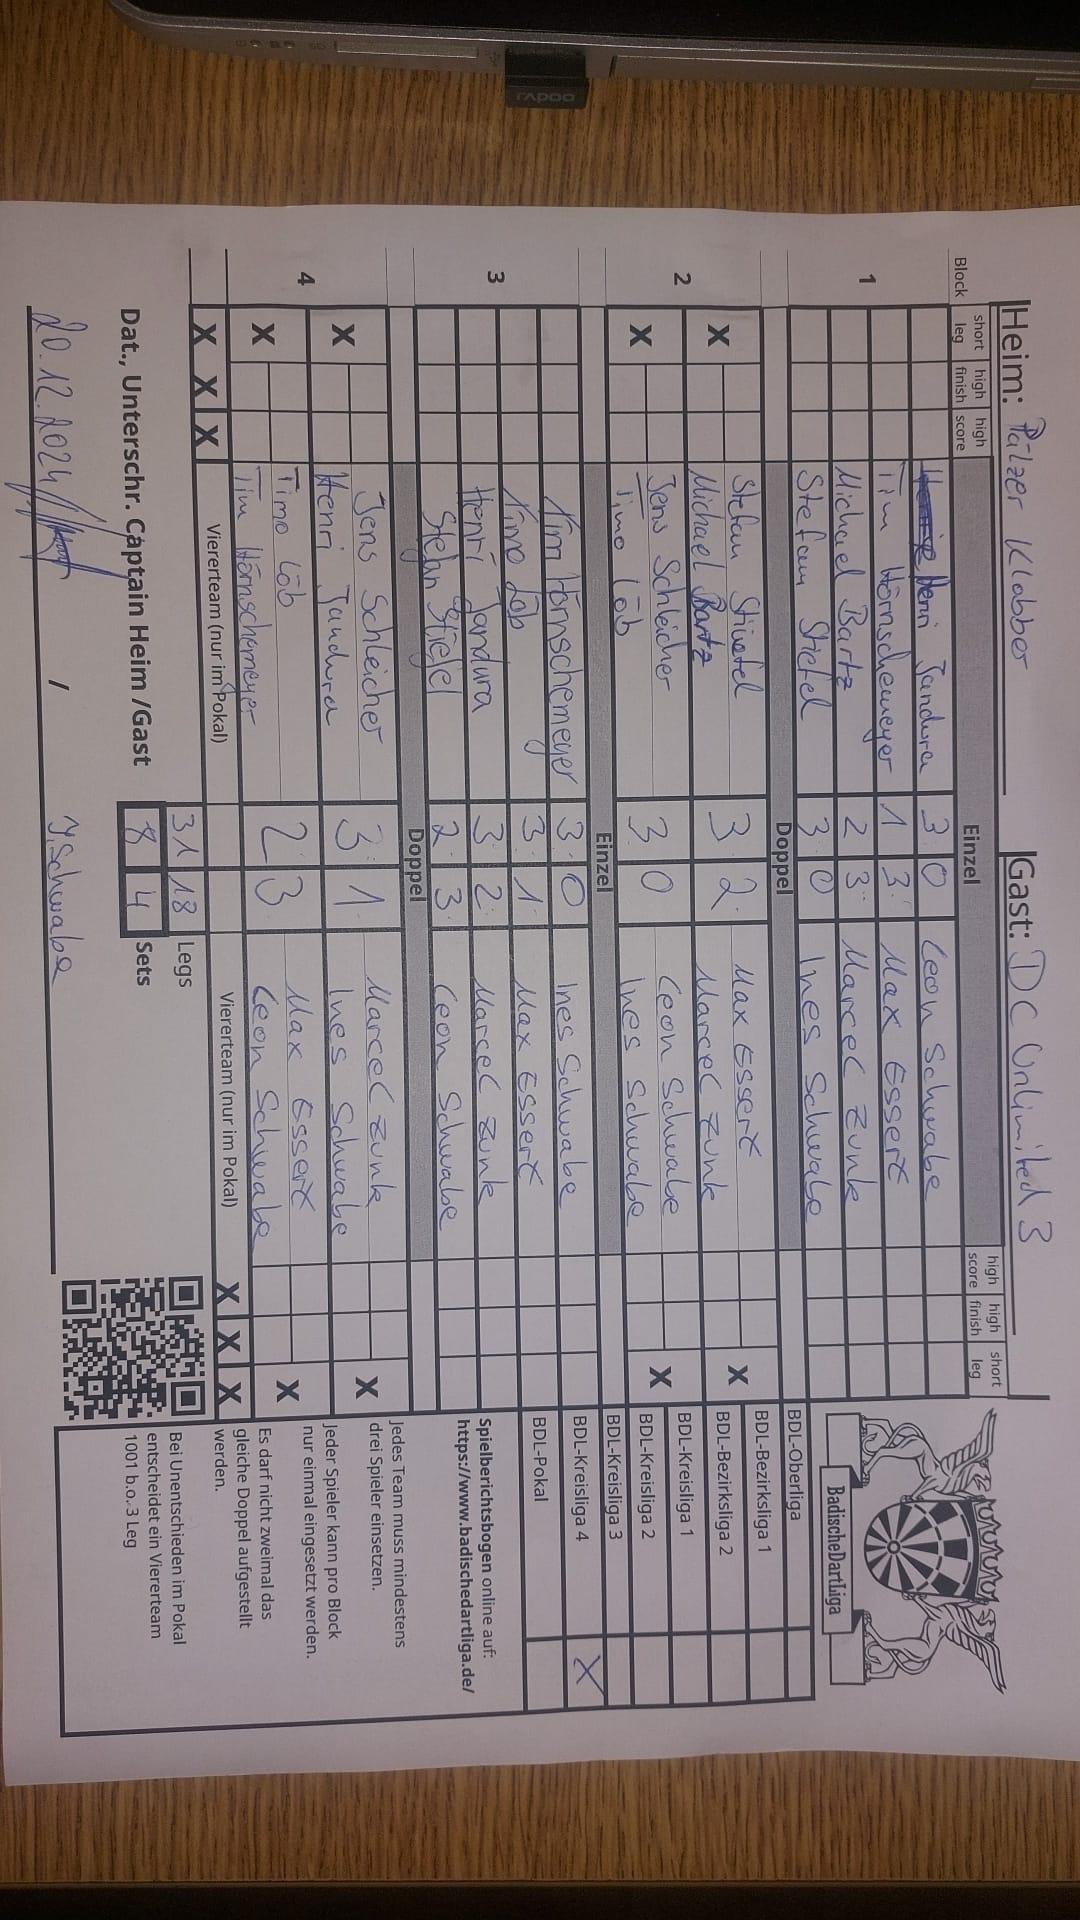 Heim: Pälzer Klobber Gast: DC Unlimited 3
Block short leg high finish high score Einzel high score high finish short leg
1 Henri Jandura 3 0 Leon Schwabe
Tim Hörnschemeyer 1 3 Max Essert
Michael Bartz 2 3 Marcel Zunk
Stefan Stiefel 3 0 Ines Schwabe
Doppel
2 X Stefan Stiefel 3 2 Max Essert X
Michael Bartz Marcel Zunk
X Jens Schleicher 3 0 Leon Schwabe X
Timo Löb Ines Schwabe
Einzel
3 Tim Hörnschemeyer 3 0 Ines Schwabe
Timo Löb 3 1 Max Essert
Henri Jandura 3 2 Marcel Zunk
Stefan Stiefel 2 3 Leon Schwabe
Doppel
4 X Jens Schleicher 3 1 Marcel Zunk X
Henri Jandura Ines Schwabe
X Timo Löb 2 3 Max Essert X
Tim Hörnschemeyer Leon Schwabe
X X X Viererteam (nur im Pokal) Viererteam (nur im Pokal) X X X
31 18 Legs
Dat., Unterschr. Captain Heim /Gast 8 4 Sets
20.12.2024 / I. Schwabe
BadischeDartLiga
BDL-Oberliga
BDL-Bezirksliga 1
BDL-Bezirksliga 2
BDL-Kreisliga 1
BDL-Kreisliga 2
BDL-Kreisliga 3
BDL-Kreisliga 4 X
BDL-Pokal
Spielberichtsbogen online auf:
https://www.badischedartliga.de/
Jedes Team muss mindestens
drei Spieler einsetzen.
Jeder Spieler kann pro Block
nur einmal eingesetzt werden.
Es darf nicht zweimal das
gleiche Doppel aufgestellt
werden.
Bei Unentschieden im Pokal
entscheidet ein Viererteam
1001 b.o. 3 Leg
rapoo